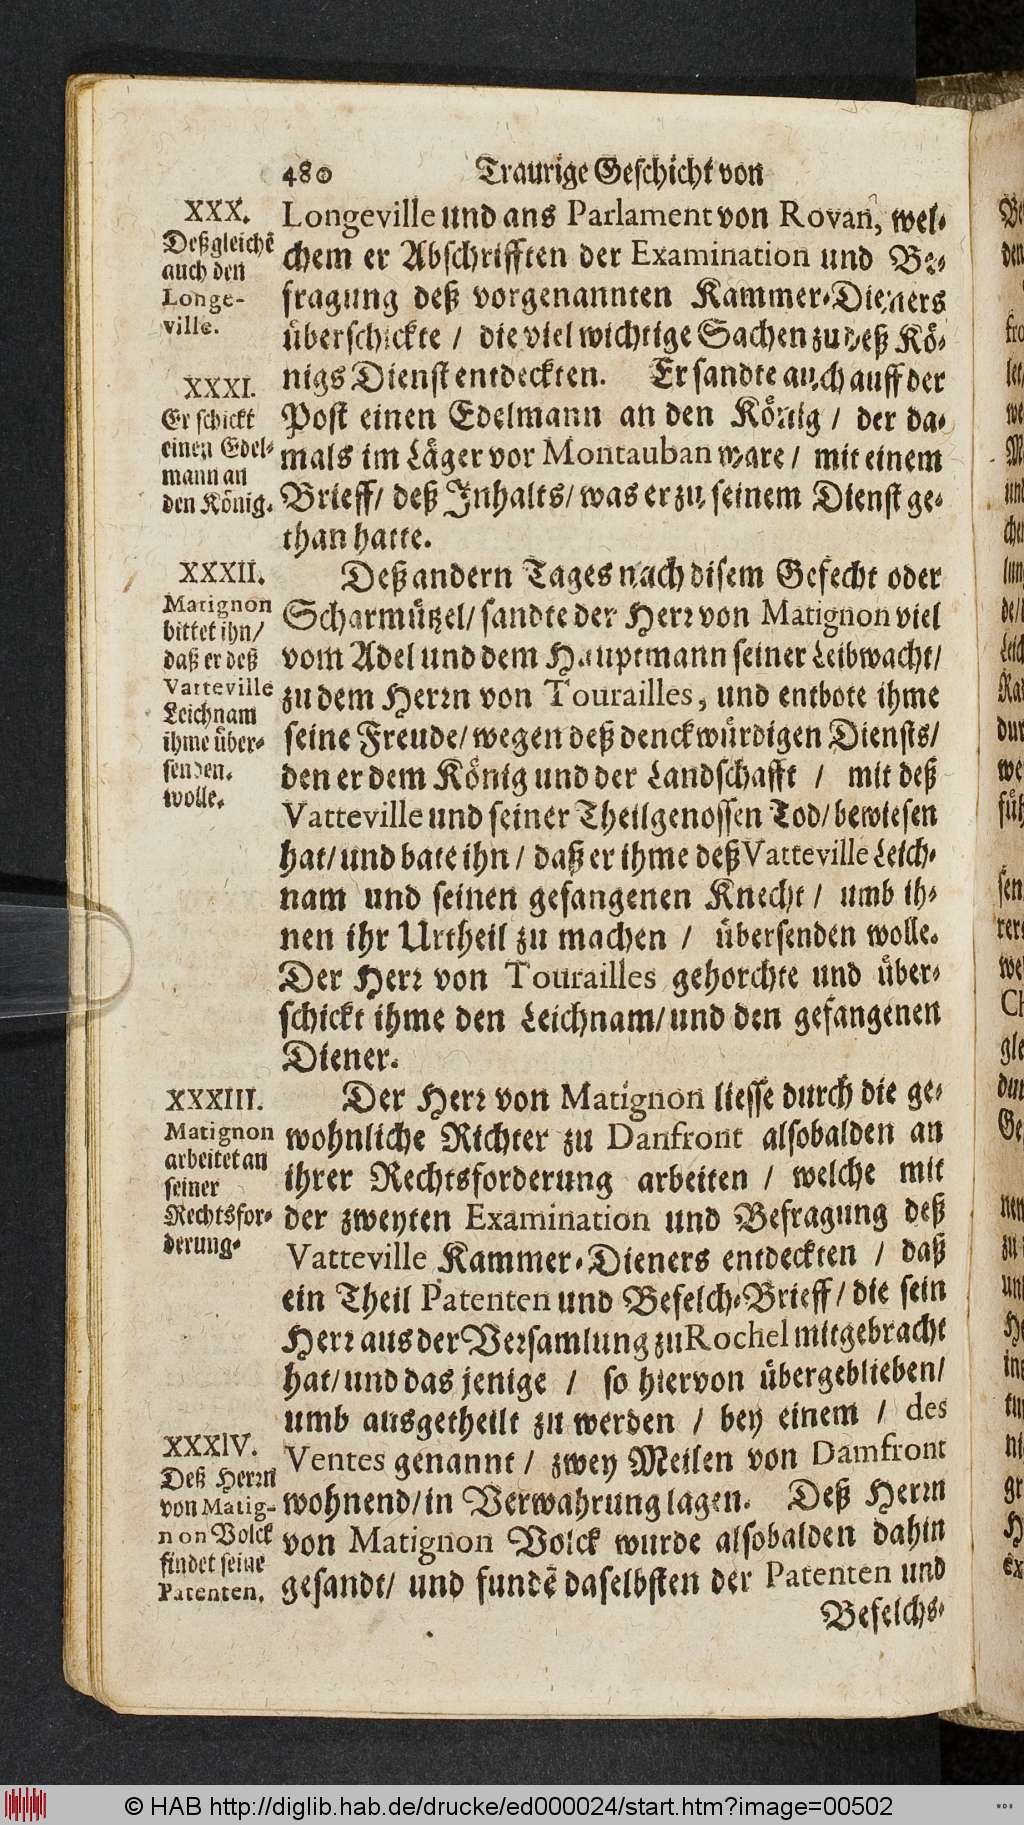 480 Traurige Geschicht von
XXX.
Deßgleichẽ
auch den
Longe-
ville.
Longeville und ans Parlament von Rovan, wel-
chem er Abschrifften der Examination und Be-
fragung deß vorgenannten Kammer-Dieners
überschickte / die viel wichtige Sachen zu deß Kö-
nigs Dienst entdeckten. Er sandte auch auff der
XXXI.
Er schickt
einen Edel-
mann an
den König.
Post einen Edelmann an den König / der da-
mals im Läger vor Montauban ware / mit einem
Brieff / deß Inhalts / was er zu seinem Dienst ge-
than hatte.
XXXII.
Matignon
bittet ihn /
daß er deß
Vatteville
Leichnam
ihme über-
senden.
wolle.
Deß andern Tages nach disem Gefecht oder
Scharmützel / sandte der Herr von Matignon viel
vom Adel und dem Hauptmann seiner Leibwacht /
zu dem Herrn von Tourailles, und entbote ihme
seine Freude / wegen deß denckwürdigen Diensts /
den er dem König und der Landschafft / mit deß
Vatteville und seiner Theilgenossen Tod / bewiesen
hat / und bate ihn / daß er ihme deß Vatteville Leich-
nam und seinen gefangenen Knecht / umb ih-
nen ihr Urtheil zu machen / übersenden wolle.
Der Herr von Tourailles gehorchte und über-
schickt ihme den Leichnam / und den gefangenen
Diener.
XXXIII.
Matignon
arbeitet an
seiner
Rechtsfor-
derung.
Der Herr von Matignon liesse durch die ge-
wohnliche Richter zu Danfront alsobalden an
ihrer Rechtsforderung arbeiten / welche mit
der zweyten Examination und Befragung deß
Vatteville Kammer-Dieners entdeckten / daß
ein Theil Patenten und Befelch-Brieff / die sein
Herr aus der Versamlung zu Rochel mitgebracht
hat / und das jenige / so hiervon übergeblieben /
umb ausgetheilt zu werden / bey einem / des
XXXIV.
Deß Herrn
von Matig-
non Volck
findet seine
Patenten.
Ventes genannt / zwey Meilen von Damfront
wohnend / in Verwahrung lagen. Deß Herrn
von Matignon Volck wurde alsobalden dahin
gesandt / und fundẽ daselbsten der Patenten und
Befelchs-
© HAB http://diglib.hab.de/drucke/ed000024/start.htm?image=00502